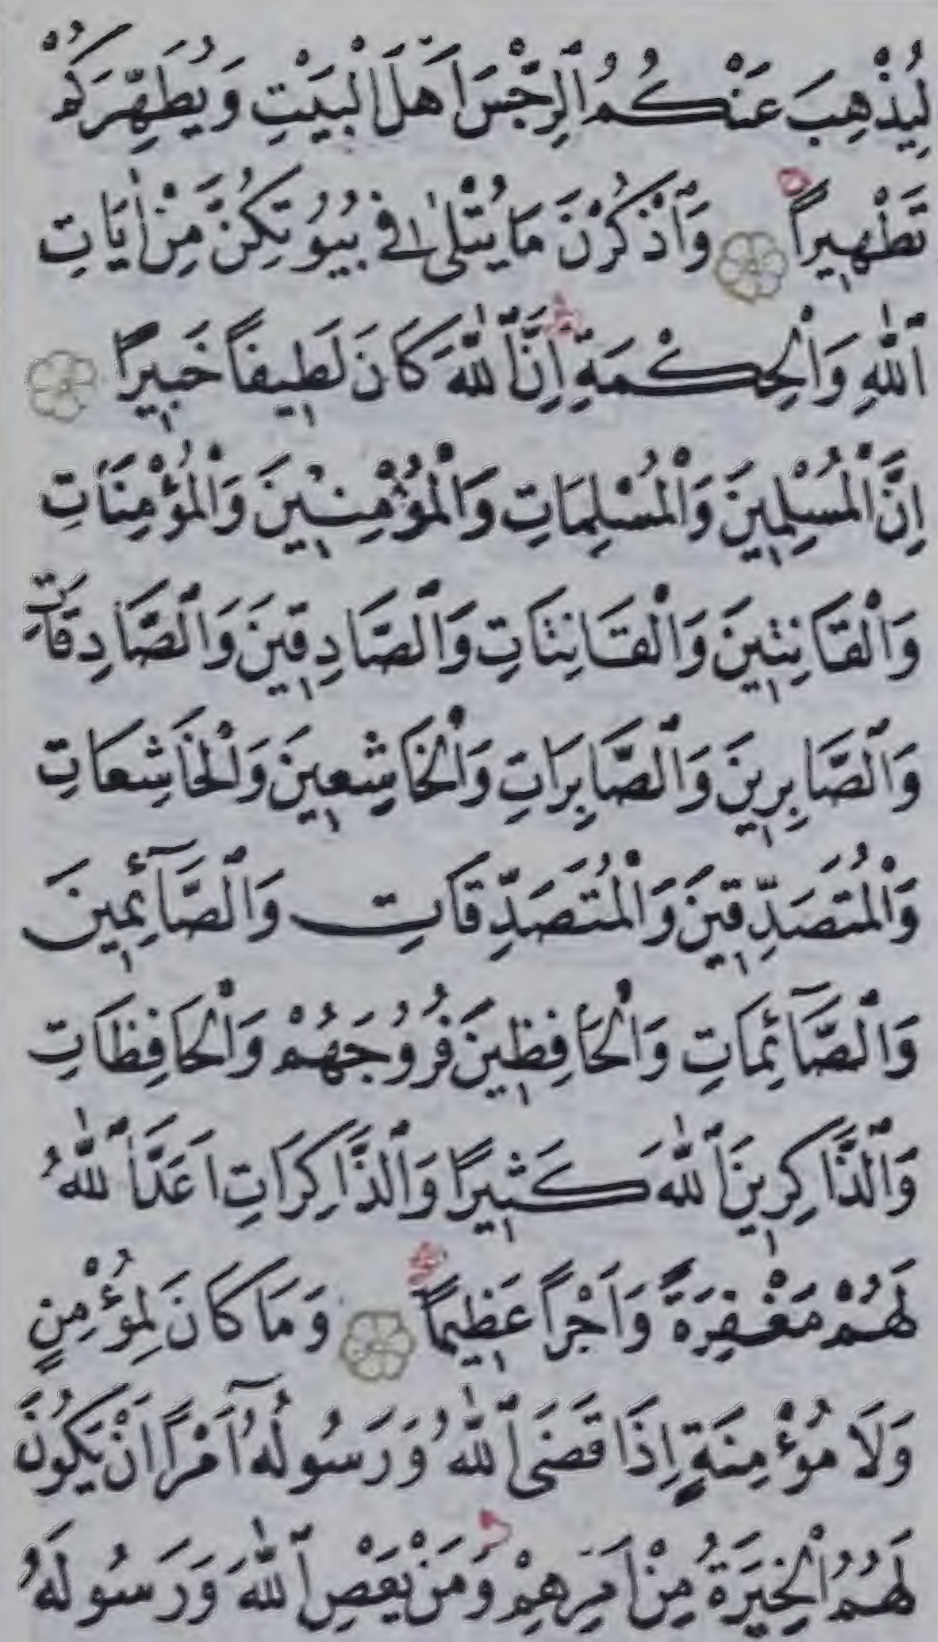 لِيُذْهِبَ عَنْكُمُ ٱلرِّجْسَ اَهْلَ ٱلْبَيْتِ وَيُطَهِّرَكُمْ
تَطْهِيراً وَٱذْكُرْنَ مَا يُتْلٰى فِى بُيُوتِكُنَّ مِنْ اٰيَاتِ
ٱللّٰهِ وَٱلْحِكْمَةِ اِنَّ ٱللّٰهَ كَانَ لَطِيفاً خَبِيرًا
اِنَّ ٱلْمُسْلِمِينَ وَٱلْمُسْلِمَاتِ وَٱلْمُؤْمِنِينَ وَٱلْمُؤْمِنَاتِ
وَٱلْقَانِتِينَ وَٱلْقَانِتَاتِ وَٱلصَّادِقِينَ وَٱلصَّادِقَاتِ
وَٱلصَّابِرِينَ وَٱلصَّابِرَاتِ وَٱلْخَاشِعِينَ وَٱلْخَاشِعَاتِ
وَٱلْمُتَصَدِّقِينَ وَٱلْمُتَصَدِّقَاتِ وَٱلصَّآئِمِينَ
وَٱلصَّآئِمَاتِ وَٱلْحَافِظِينَ فُرُوجَهُمْ وَٱلْحَافِظَاتِ
وَٱلذَّاكِرِينَ ٱللّٰهَ كَثِيرًا وَٱلذَّاكِرَاتِ اَعَدَّ ٱللّٰهُ
لَهُمْ مَغْفِرَةً وَاَجْراً عَظِيماً وَمَا كَانَ لِمُؤْمِنٍ
وَلَا مُؤْمِنَةٍ اِذَا قَضَى ٱللّٰهُ وَرَسُولُهُٓ اَمْرًا اَنْ يَكُونَ
لَهُمُ ٱلْخِيَرَةُ مِنْ اَمْرِهِمْ وَمَنْ يَعْصِ ٱللّٰهَ وَرَسُولَهُ